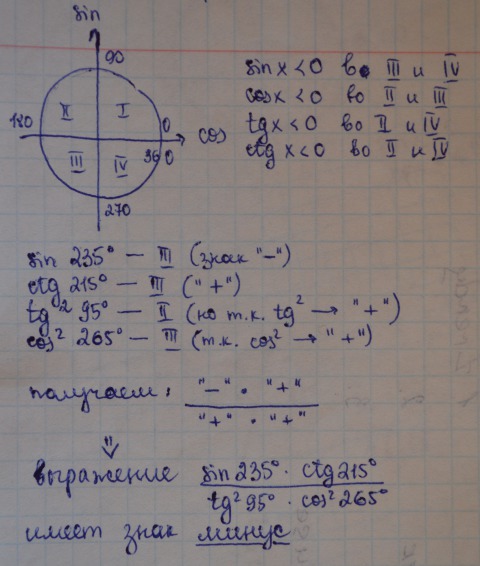 sin
90
II I
180 0 cos
III IV 360
270
sin x < 0 во III и IV
cos x < 0 во II и III
tg x < 0 во II и IV
ctg x < 0 во II и IV
sin 235° — III (знак "—")
ctg 215° — III ("+")
tg² 95° — II (но т.к. tg² → "+")
cos² 265° — III (т.к. cos² → "+")
получаем: "—" · "+"
"+" · "+"
⇓
выражение sin 235° · ctg 215°
tg² 95° · cos² 265°
имеет знак минус